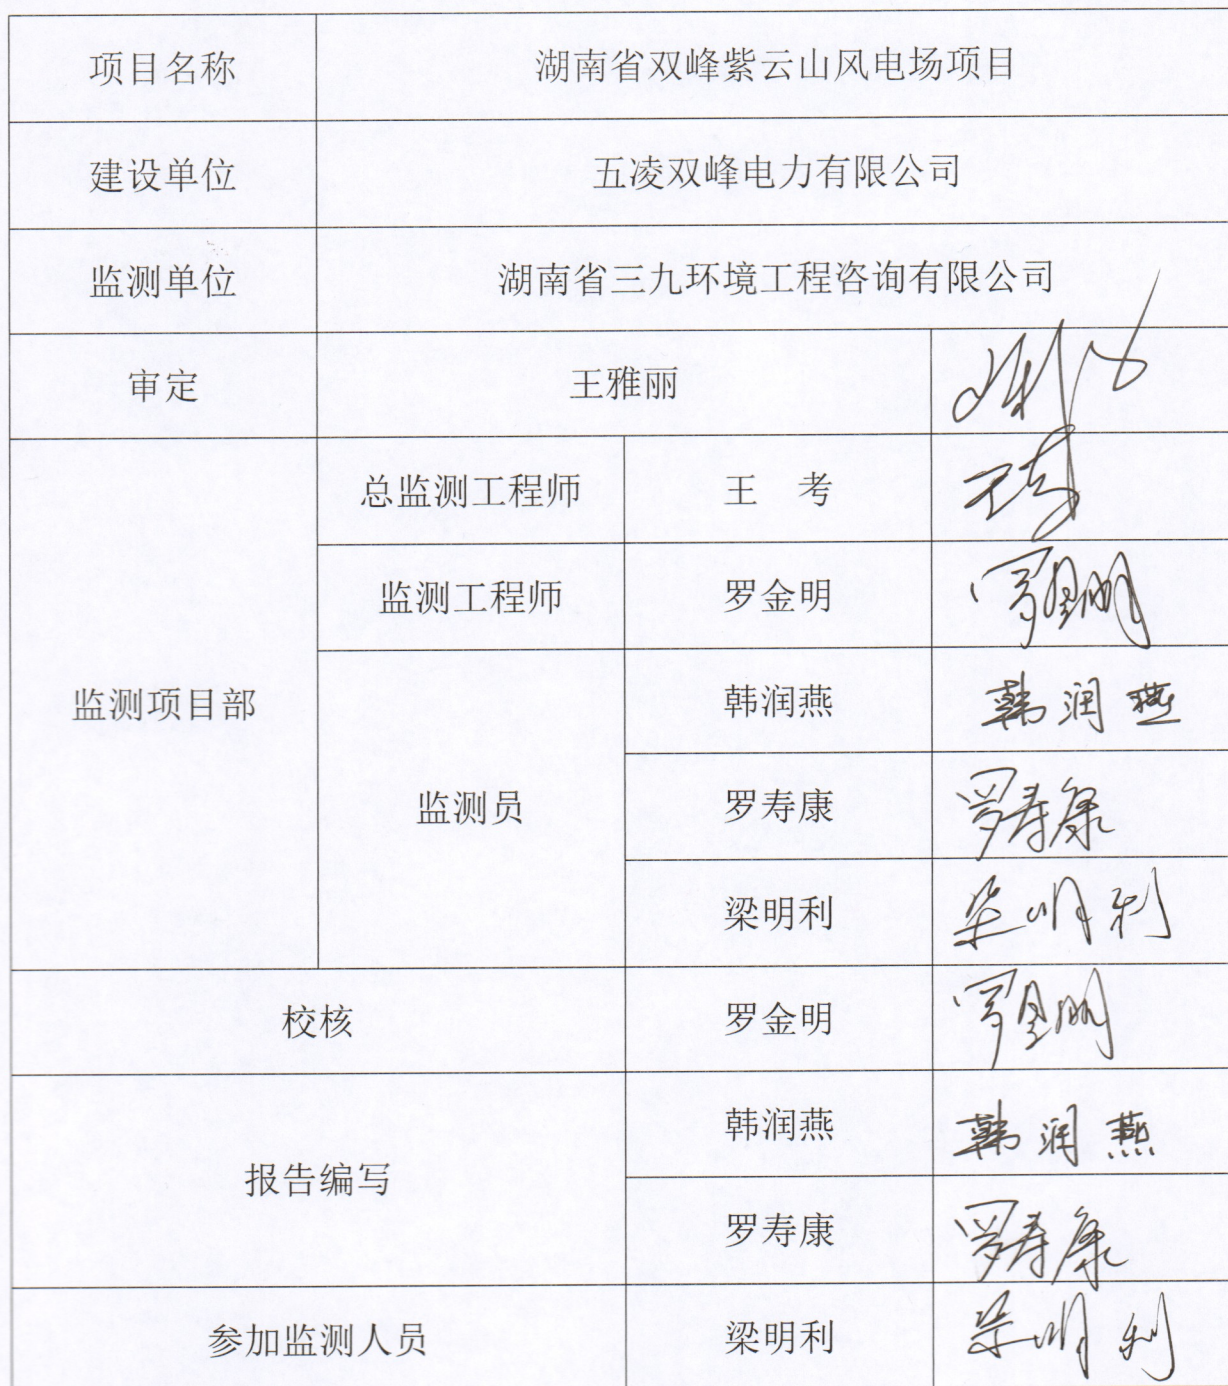 项目名称 湖南省双峰紫云山风电场项目
建设单位 五凌双峰电力有限公司
监测单位 湖南省三九环境工程咨询有限公司
审定 王雅丽
总监测工程师 王 考 王考
监测工程师 罗金明 罗金明
监测项目部 韩润燕 韩润燕
监测员 罗寿康 罗寿康
梁明利 梁明利
校核 罗金明 罗金明
韩润燕 韩润燕
报告编写
罗寿康 罗寿康
参加监测人员 梁明利 梁明利